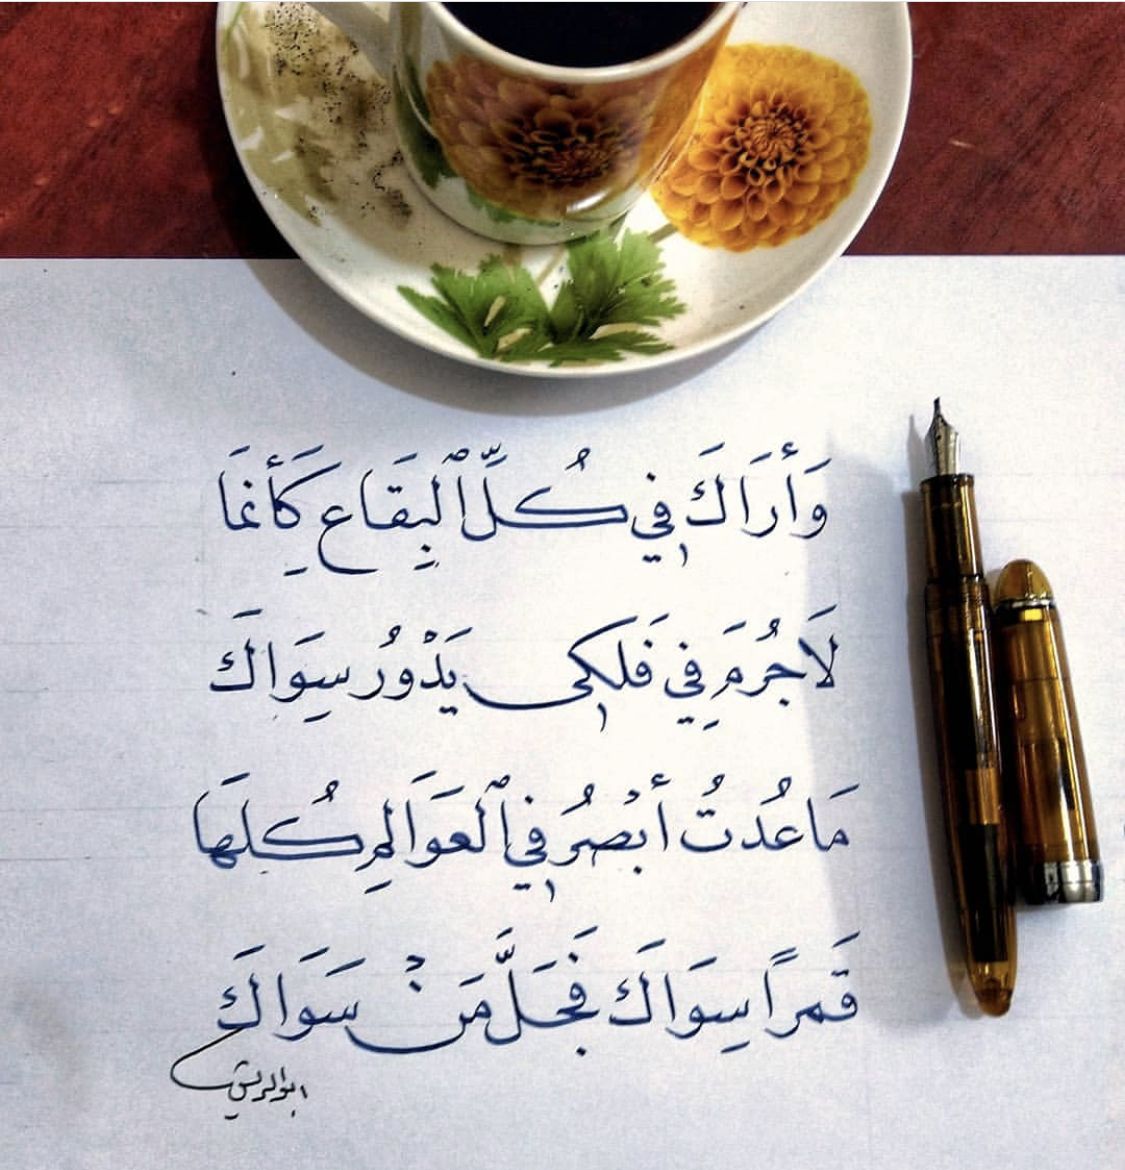 وَأَرَاكَ فِي كُلِّ ٱلْبِقَاعِ كَأَنَّمَا
لَا جُرْمَ فِي فَلَكِي يَدُورُ سِوَاكَ
مَا عُدتُ أُبْصِرُ فِي ٱلْعَوَالِمِ كُلِّهَا
قَمَرًا سِوَاكَ فَجَلَّ مَنْ سَوَاكَ